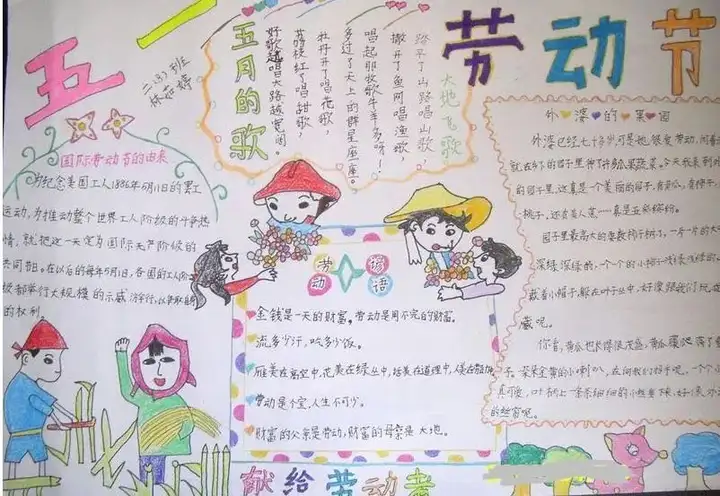 五一
劳动节
二(3)班
林茹婷
国际劳动节的由来
为纪念美国工人1886年5月1日的罢工
运动,为推动整个世界工人阶级的斗争热
情,就把这一天定为国际无产阶级的
共同节日。在以后的每年5月1日,各国的工人阶
级都举行大规模的示威游行,以争取
的权利。
五月的歌
大地飞歌
踏平了山路唱山歌,
撒开了鱼网唱渔歌,
唱起那牧歌牛羊多呀!
多过了天上的群星座座。
牡丹开了唱花歌,
荔枝红了唱甜歌,
好歌越唱大路越宽阔。
劳动谚语
金钱是一天的财富。劳动是用不完的财富。
流多少汗,吃多少饭。
雁美在高空中,花美在绿丛中,话美在道理中,人美在劳动中。
劳动是个宝,人生不可少。
财富的父亲是劳动,财富的母亲是大地。
外婆的果园
外婆已经七十多岁,可是她很爱劳动,
就在乡下的园子里种了许多瓜果蔬菜。今天我来到
的园子里,这真是一个美丽的园子,有黄瓜,有辣子,
桃子,还有美人蕉……真是五彩缤纷。
园子里最高大的要数柿子树了,一片一片的
深绿深绿的,一个个的小柿子浅绿浅绿的,
戴着小帽子,躲在叶子丛中,好像跟我们玩
藏呢。
你看,黄瓜也长得很茂盛,黄瓜藤爬满了
朵朵金黄的小喇叭,在向我们招手呢。一个个
献给劳动者